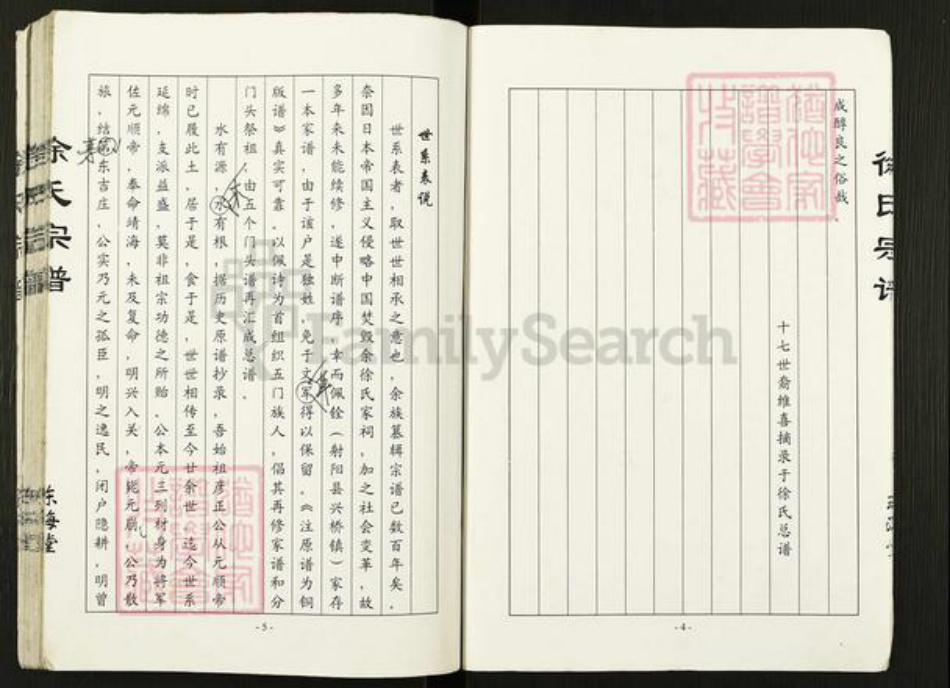 成醇良之俗哉.
十七世裔维喜摘录于徐氏总谱
-4-
徐氏宗谱
世系表说
世系表者,取世世相承之意也,余族纂辑宗谱已数百年矣,
奈因日本帝国主义侵略中国焚毁余徐氏家祠,加之社会变革,故
多年来未能续修,遂中断谱序,幸而佩铨(射阳县兴桥镇)家存
一本家谱,由于该户是独姓,免于文军得以保留.《注原谱为铜
版谱》真实可靠.以佩诗为首组织五门族人,倡其再修家谱和分
门头祭祖,由五个门头谱再汇成总谱.
水有源,水有根,据历史原谱抄录,吾始祖彦正公从元顺帝
时已履此土,居于是,食于是,世世相传至今廿余世,迄今世系
延绵,支派益盛,莫非祖宗功德之所贻.公本元三列材身为将军
佐元顺帝,奉命靖海,未及复命,明兴入关,帝元崩,公乃散
旅,结东吉庄,公实乃元之孤臣,明之逸民,闭户隐耕,明曾
木
革
-5-
余氏宗普
东海堂
FamilySearch